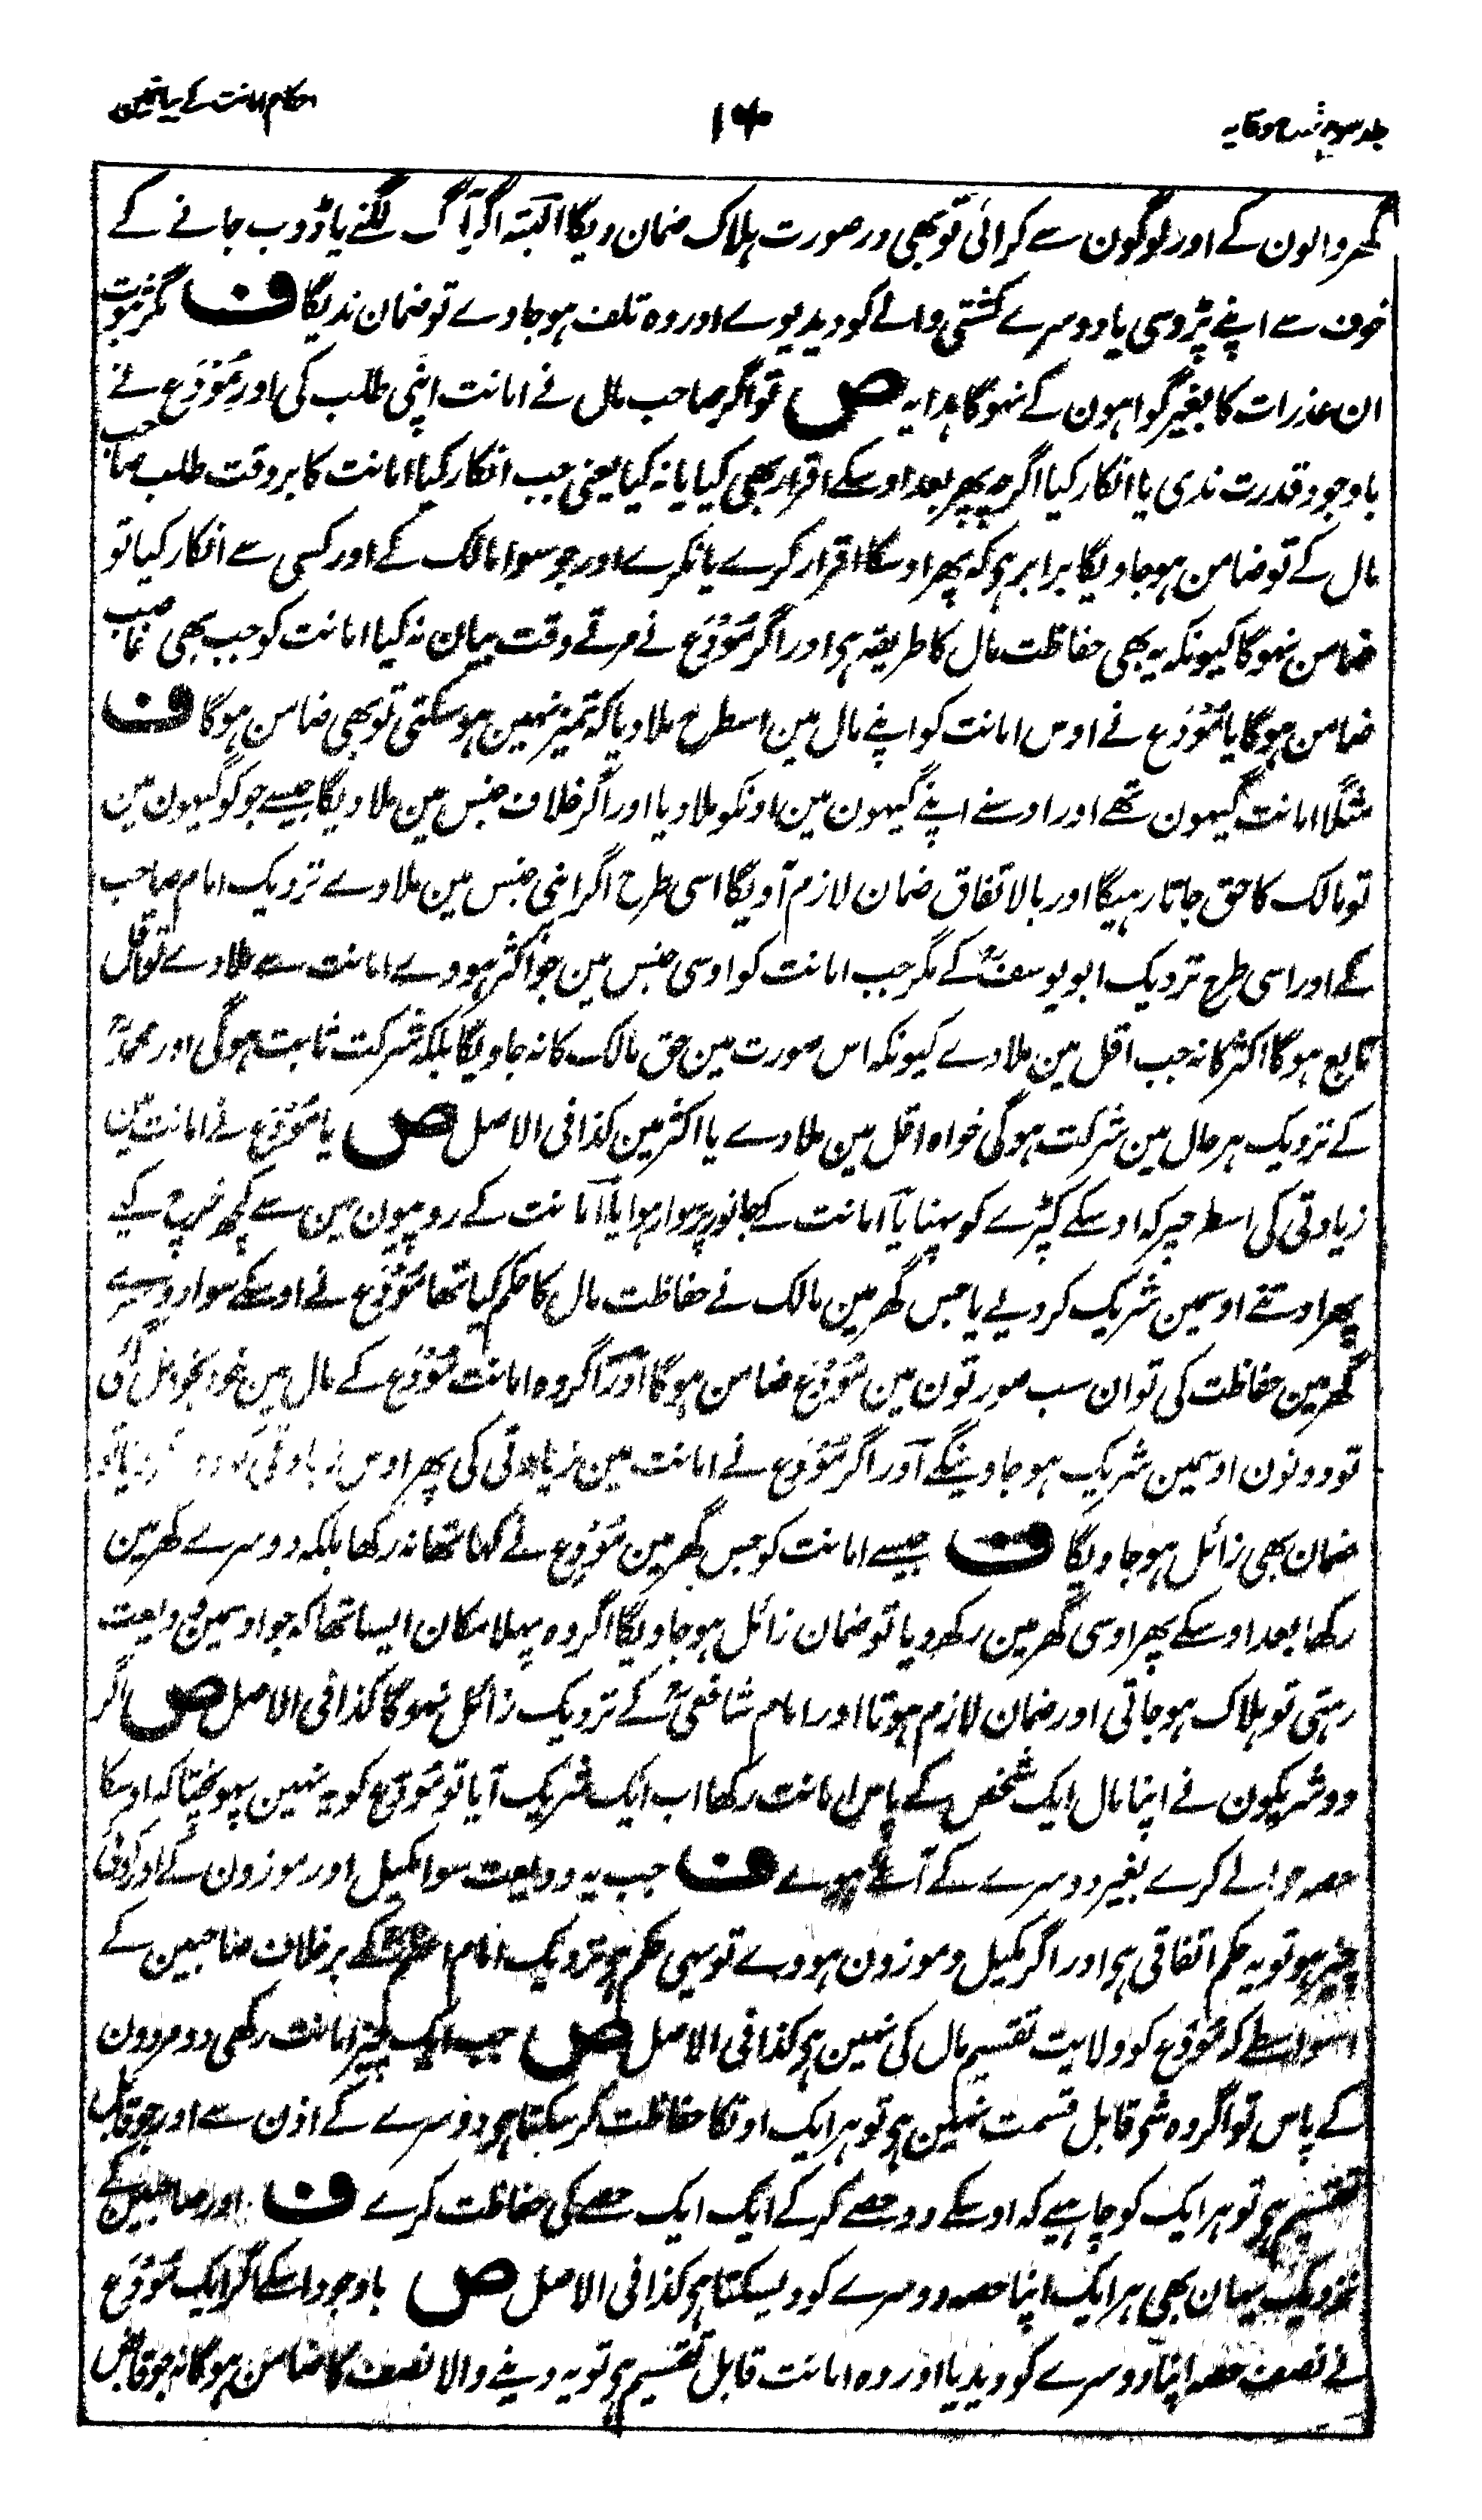 جلد سوم شرح وقایہ
۱۴
احکام امانت کے بیان میں
گھر والون کے اور لوگون سے کرائی تو بھی در صورت ہلاک ضمان دیگا البتہ اگر آگ لگنے یا ڈوب جانے کے
خوف سے اپنے پڑوسی یا دوسرے کشتی والے کو دیدیوے اور وہ تلف ہو جاوے تو ضمان ندیگا ف مگر ثبوت
ان عذرات کا بغیر گواہون کے نہوگا ہدایہ ص تو اگر صاحب مال نے امانت اپنی طلب کی اور مُودَع نے
باوجود قدرت ندی یا انکار کیا اگرچہ پھر بعد اوسکے اقرار بھی کیا یا نہ کیا یعنی جب انکار کیا امانت کا بر وقت طلب صاحب
مال کے تو ضامن ہو جاویگا برابر ہی کہ پھر اوسکا اقرار کرے یا نکرے اور جو سوا مالک کے اور کسی سے انکار کیا تو
ضامن نہوگا کیونکہ یہ بھی حفاظت مال کا طریقہ ہی اور اگر مُودَع نے مرتے وقت بیان نہ کیا امانت کو جب بھی غاصب
ضامن ہوگا یا مُودَع نے اوس امانت کو اپنے مال مین اسطرح ملا دیا کہ تمیز نہین ہو سکتی تو بھی ضامن ہوگا ف
مثلاً امانت گیہون تھے اور اوسنے اپنے گیہون مین اونکو ملا دیا اور اگر خلاف جنس مین ملا دیگا جیسے جو کو گیہون مین
تو مالک کا حق جاتا رہیگا اور بالاتفاق ضمان لازم آویگا اسی طرح اگر اپنی جنس مین ملاوے نزدیک امام صاحب
کے اور اسی طرح نزدیک ابو یوسفؒ کے مگر جب امانت کو اوسی جنس مین جو اکثر ہووے امانت سے ملاوے تو اقل
تابع ہوگا اکثر کا نہ جب اقل مین ملاوے کیونکہ اس صورت مین حق مالک کا نہ جاویگا بلکہ شرکت ثابت ہوگی اور محمدؒ
کے نزدیک ہر حال مین شرکت ہوگی خواہ اقل مین ملاوے یا اکثر مین کذا فی الاصل ص یا مُودَع نے امانت مین
زیادتی کی اسطرحپر کہ اوسکے کپڑے کو پہنا یا امانت کے جانور پر سوار ہوا یا امانت کے روپیون مین سے کچھ خرچ کیے
پھر اوتنے اوسمین شریک کر دیے یا جس گھر مین مالک نے حفاظت مال کا حکم کیا تھا مُودَع نے اوسکے سوا دوسرے
گھر مین حفاظت کی تو ان سب صورتون مین مُودَع ضامن ہوگا اور اگر وہ امانت مُودَع کے مال مین خود بخود مل گئی
تو دونون اوسمین شریک ہو جاوینگے اور اگر مُودَع نے امانت مین زیادتی کی پھر اوس زیادتی کو
ضمان بھی زائل ہو جاویگا ف جیسے امانت کو جس گھر مین مُودِع نے کہا تھا نہ رکھا بلکہ دوسرے گھر مین
رکھا بعد اوسکے پھر اوسی گھر مین رکھ دیا تو ضمان زائل ہو جاویگا اگر وہ پہلا مکان ایسا تھا کہ جو اوسمین ودیعت
رہتی تو ہلاک ہو جاتی اور ضمان لازم ہوتا اور امام شافعیؒ کے نزدیک زائل نہوگا کذا فی الاصل ص اگر
دو شریکون نے اپنا مال ایک شخص کے پاس امانت رکھا اب ایک شریک آیا تو مُودَع کو یہ نہین پہونچتا کہ اوسکا
حصہ حوالے کرے بغیر دوسرے کے آئے ہوے ف جب یہ ودیعت سوا مکیل اور موزون کے اور کوئی
چیز ہو تو یہ حکم اتفاقی ہی اور اگر مکیل و موزون ہووے تو یہی حکم ہی نزدیک امام اعظمؒ کے برخلاف صاحبین کے
اسواسطے کہ مُودَع کو ولایت تقسیم مال کی نہین ہی کذا فی الاصل ص جب ایک چیز امانت رکھی دو مردون
کے پاس تو اگر وہ شی قابل قسمت نہین ہی تو ہر ایک اوسکا حفاظت کر سکتا ہی دوسرے کے اذن سے اور جو قابل
تقسیم ہی تو ہر ایک کو چاہیے کہ اوسکے دو حصے کر کے ایک ایک حصے کی حفاظت کرے ف اور صاحبین کے
نزدیک یہان بھی ہر ایک اپنا حصہ دوسرے کو دیسکتا ہی کذا فی الاصل ص باوجود اسکے اگر ایک مُودَع
نے نصف حصہ اپنا دوسرے کو دیدیا اور وہ امانت قابل تقسیم ہی تو یہ دینے والا نصف کا ضامن ہوگا نہ جو قابض